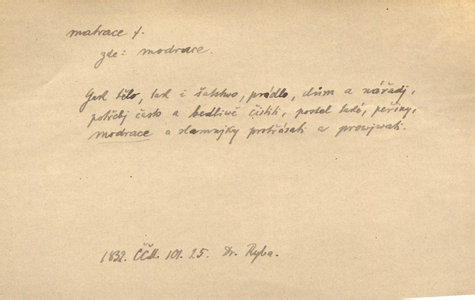 matrace f.
zde: modrace.
Jak tělo, tak i šatstvo, prádlo, dům a nářadj,
potřebj často a bedliwě čistiti, postel také, peřiny,
modrace a slamnjky protřásati a prowjwati.
1832. ČČM. 101. 25. Dr. Ryba.